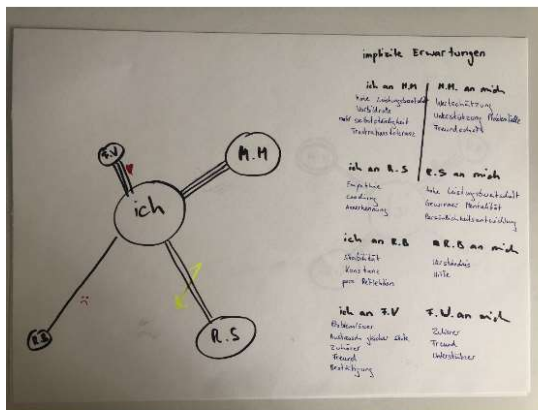 F.V
M.M
ich
R.B
R.S
implizite Erwartungen
ich an M.M
hohe Leistungsbereitschaft
Vorbildrolle
mehr Selbstständigkeit
Frustrationstoleranz
M.M. an mich
Wertschätzung
Unterstützung
Freundschaft
ich an R.S
Empathie
Coaching
Anerkennung
R.S an mich
hohe Leistungsbereitschaft
Gewinner Mentalität
Persönlichkeitsentwicklung
ich an R.B
Stabilität
Konstanz
Reflektion
R.B an mich
Verständnis
Hilfe
ich an F.V
Austausch gleicher
Zuhörer
Freund
Bestätigung
F.V. an mich
Zuhörer
Freund
Unterstützer